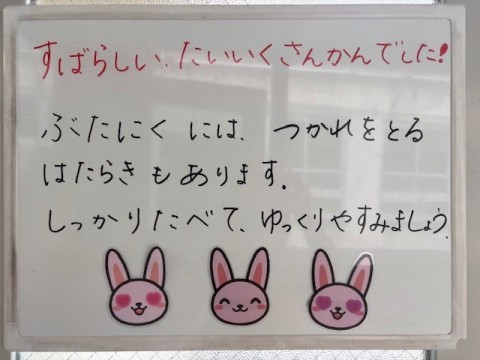 すばらしい、たいいくさんかんでした!
ぶたにくには、つかれをとる
はたらきもあります。
しっかりたべて、ゆっくりやすみましょう。